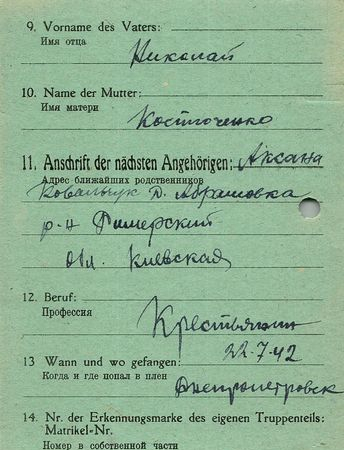 9. Vorname des Vaters:
Имя отца
Николай
10. Name der Mutter:
Имя матери
Костюченко
11. Anschrift der nächsten Angehörigen: Аксана
Адрес ближайших родственников
Ковальчук д. Абрамовка
р-н Димерский
обл. Киевская
12. Beruf:
Профессия
Крестьянин
22.7.42
13 Wann und wo gefangen:
Когда и где попал в плен
Днепропетровск
14. Nr. der Erkennungsmarke des eigenen Truppenteils:
Matrikel-Nr.
Номер в собственной части